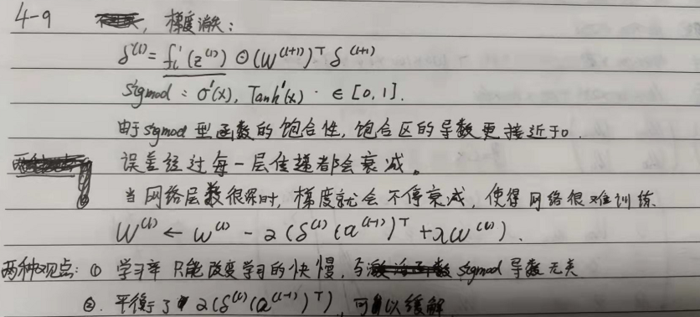 4-9 梯度消失:
δ^(l) = f_l'(z^(l)) ⊙ (W^(l+1))^T δ^(l+1)
sigmod : σ'(x), Tanh'(x) ∈ [0, 1].
由于 sigmod 型函数的饱合性, 饱合区的导数更接近于0.
误差经过每一层传递都会衰减。
当网络层数很深时, 梯度就会不停衰减, 使得网络很难训练.
W^(l) ← W^(l) - α(δ^(l) (a^(l-1))^T + λW^(l)).
两种观点: ① 学习率只能改变学习的快慢, 与 sigmod 导数无关
②. 平衡了 α(δ^(l) (a^(l-1))^T), 可以缓解